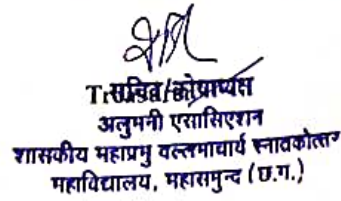 सचिव/कोषाध्यक्ष
अलुमनी एसासिएशन
शासकीय महाप्रभु वल्लभाचार्य स्नातकोत्तर
महाविद्यालय, महासमुन्द (छ.ग.)